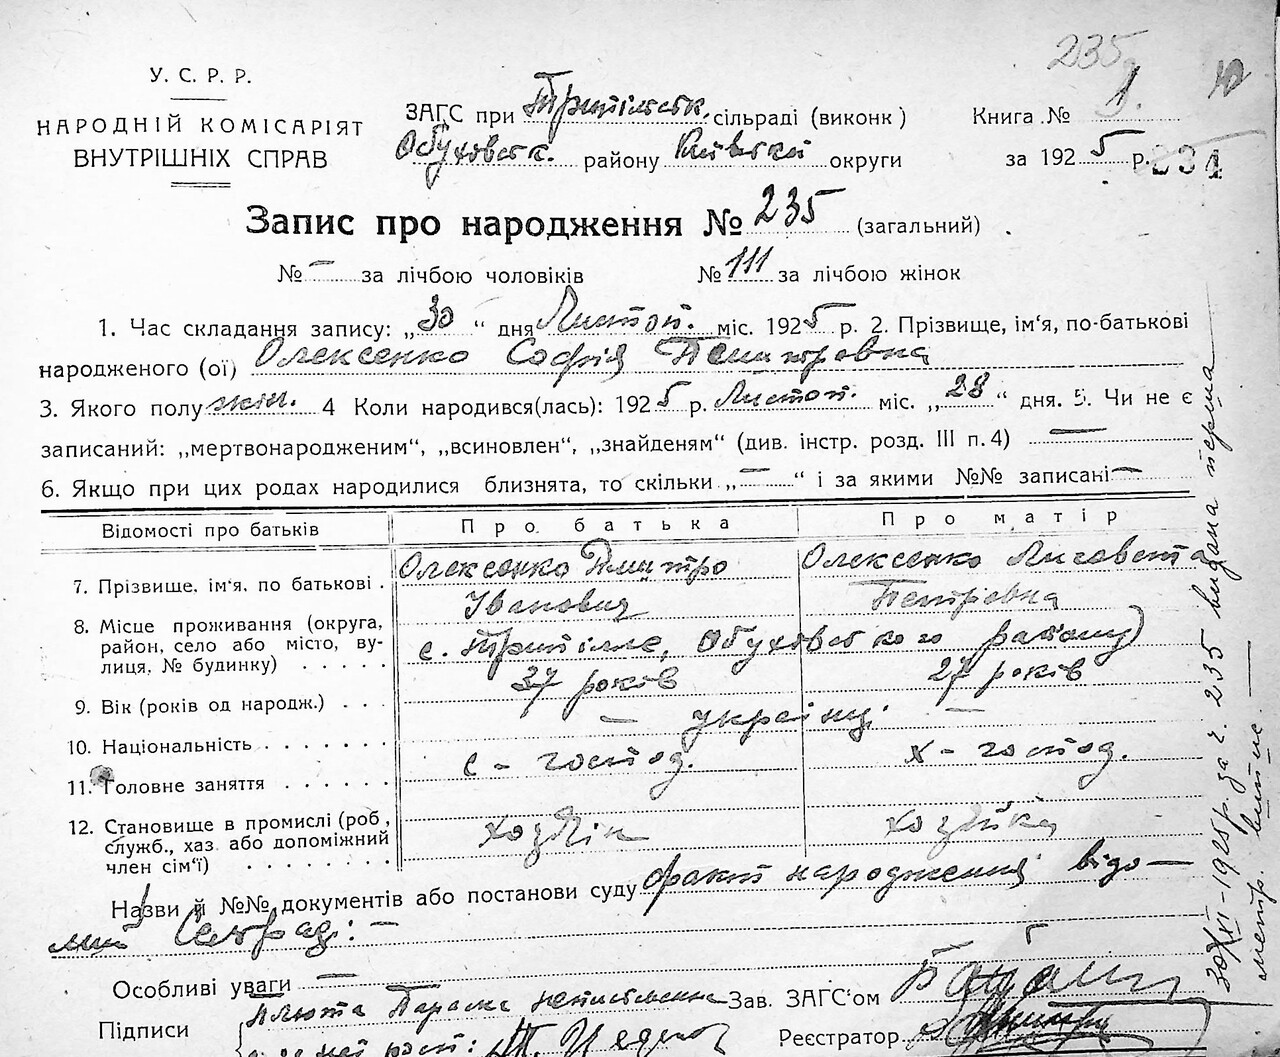 235
У. С. Р. Р.
НАРОДНІЙ КОМІСАРІЯТ
ВНУТРІШНІХ СПРАВ
ЗАГС при Трипільськ. сільраді (виконк)
Обухівськ. району Київської округи
Книга № 1.
за 1925 р.
234
Запис про народження № 235 (загальний)
№ — за лічбою чоловіків № 111 за лічбою жінок
1. Час складання запису: „30“ дня Листоп. міс. 1925 р. 2. Прізвище, ім'я, по-батькові
народженого (ої) Олексенко Софія Дмитровна
3. Якого полу жін. 4 Коли народився(лась): 1925 р. Листоп. міс. „28“ дня. 5. Чи не є
записаний: „мертвонародженим“, „всиновлен“, „знайденям“ (див. інстр. розд. III п. 4) —
6. Якщо при цих родах народилися близнята, то скільки „—“ і за якими №№ записані —
Відомості про батьків Про батька Про матір
7. Прізвище, ім'я, по батькові . Олексенко Дмитро Іванович Олексенко Лисавета Петрівна
8. Місце проживання (округа,
район, село або місто, ву-
лиця, № будинку) . . . . . с. Трипілле, Обухівського району
9. Вік (років од народж.) . . . 37 років 27 років
10. Національність . . . . . . . — українці —
11. Головне заняття . . . . . . с-господ. х-господ.
12. Становище в промислі (роб,
служб., хаз або допоміжний
член сім'ї) . . . . . . . . хозяїн хозяйка
Назви й №№ документів або постанови суду факт народження відо-
мий Сельраді: —
Особливі уваги —
Зав. ЗАГС'ом
Підписи
Реєстратор
30/XII-1925 р. за ч. 235 видана перша
метр. випис —